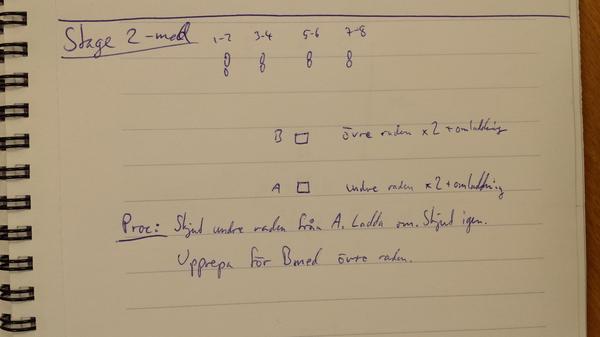 Stage 2 - med 1-2 3-4 5-6 7-8
B övre raden x2 + omladdning
A undre raden x2 + omladdning
Proc: Skjut undre raden från A. Ladda om. Skjut igen.
Upprepa för B med övre raden.